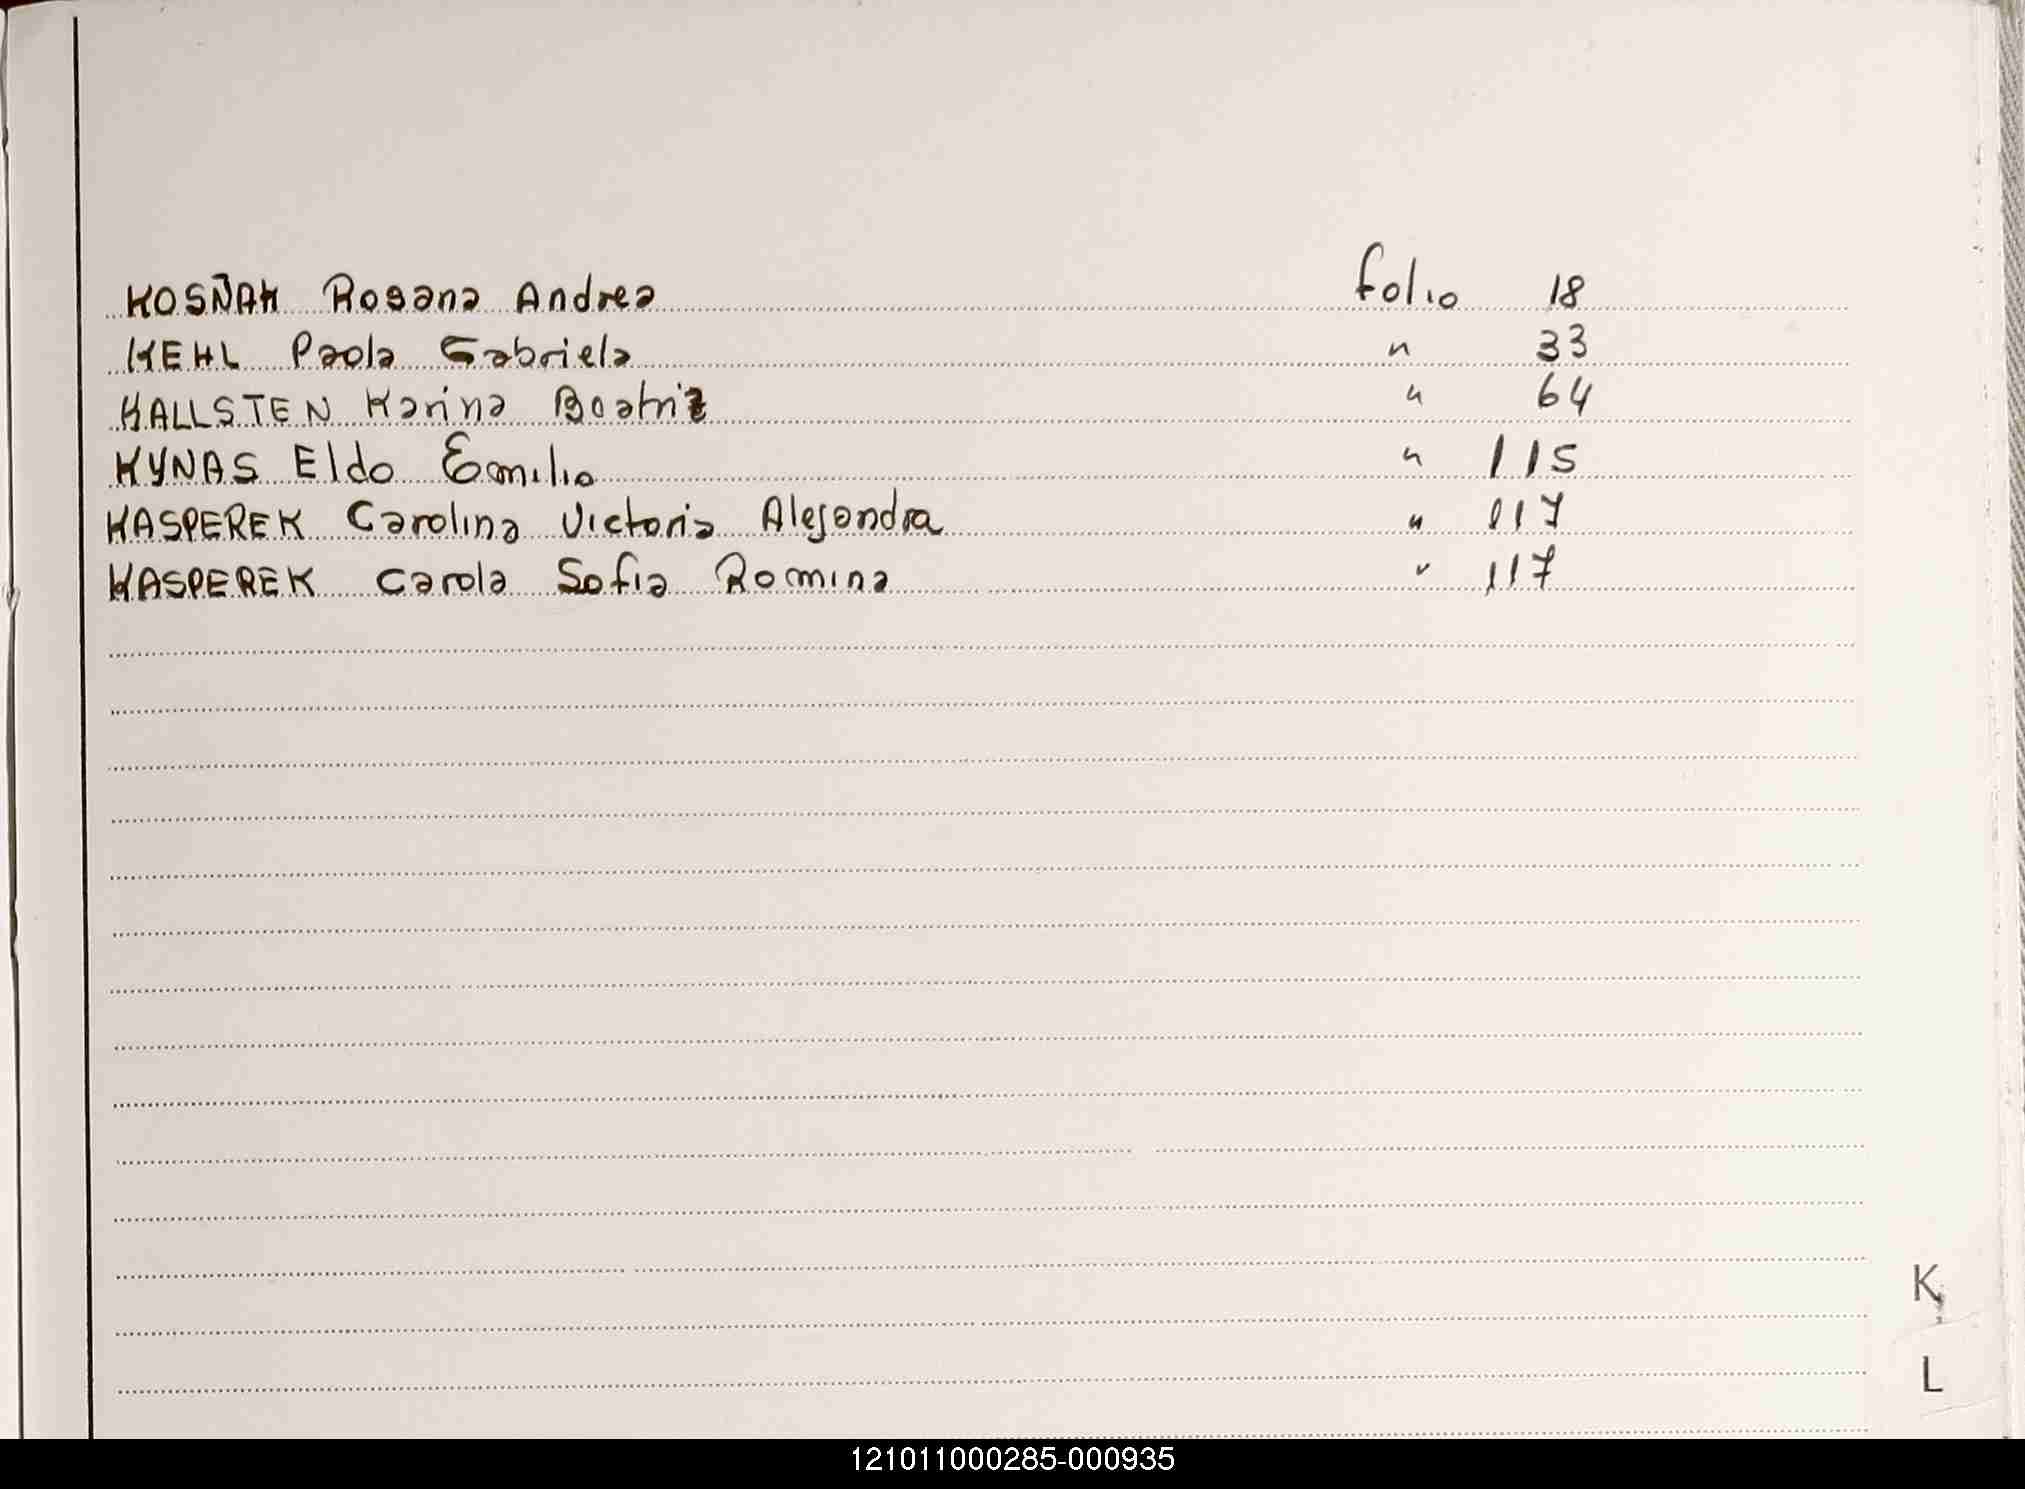 KOSÑAK Rosana Andrea folio 18
KEHL Paola Gabriela " 33
KALLSTEN Karina Beatriz " 64
KYNAS Eldo Emilio " 115
KASPEREK Carolina Victoria Alejandra " 117
KASPEREK Carola Sofia Romina " 117
K
L
121011000285-000935